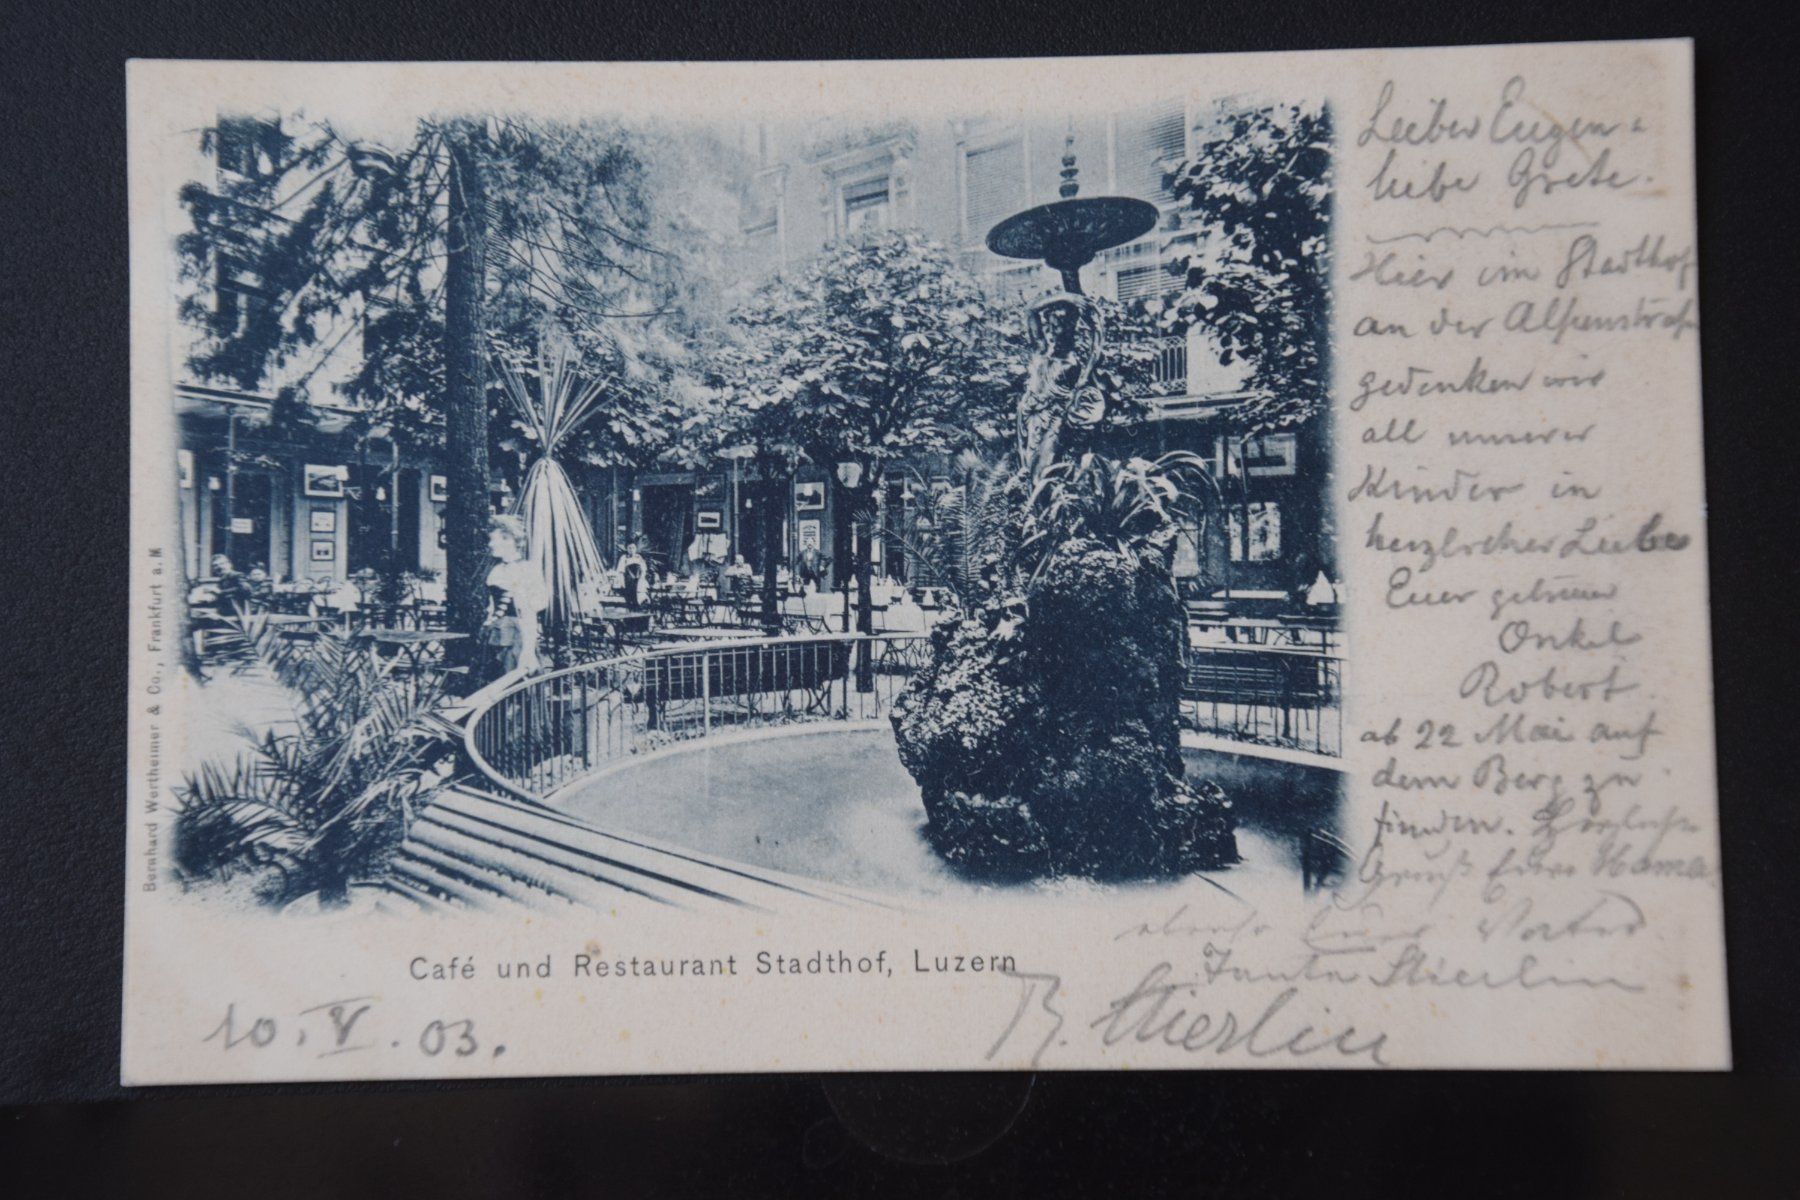 Lieber Eugen -
liebe Grete.
Hier im Stadthof
an der Alpenstraße
gedenken wir
all unserer
Kinder in
herzlicher Liebe
Euer getreuer
Onkel
Robert.
ab 22 Mai auf
dem Berg zu
finden. Herzlichen
Gruß Eurer Mama.
ebenso Euer Vater
Tante Stierlin
R. Stierlin
Café und Restaurant Stadthof, Luzern
10. V. 03.
Bernhard Wertheimer & Co., Frankfurt a. M.